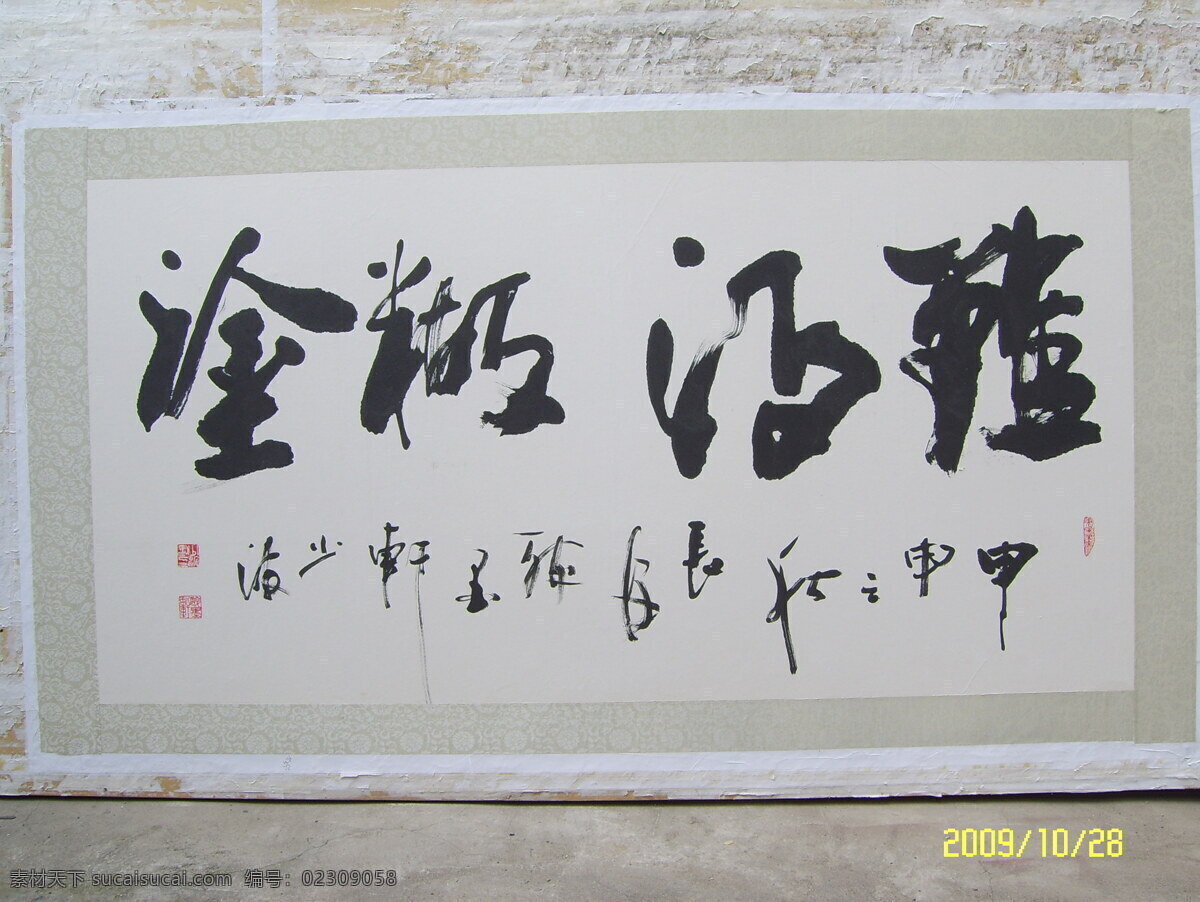 難得糊塗
甲申之秋長軒少波
2009/10/28
素材天下 sucaisucai.com 编号：02309058